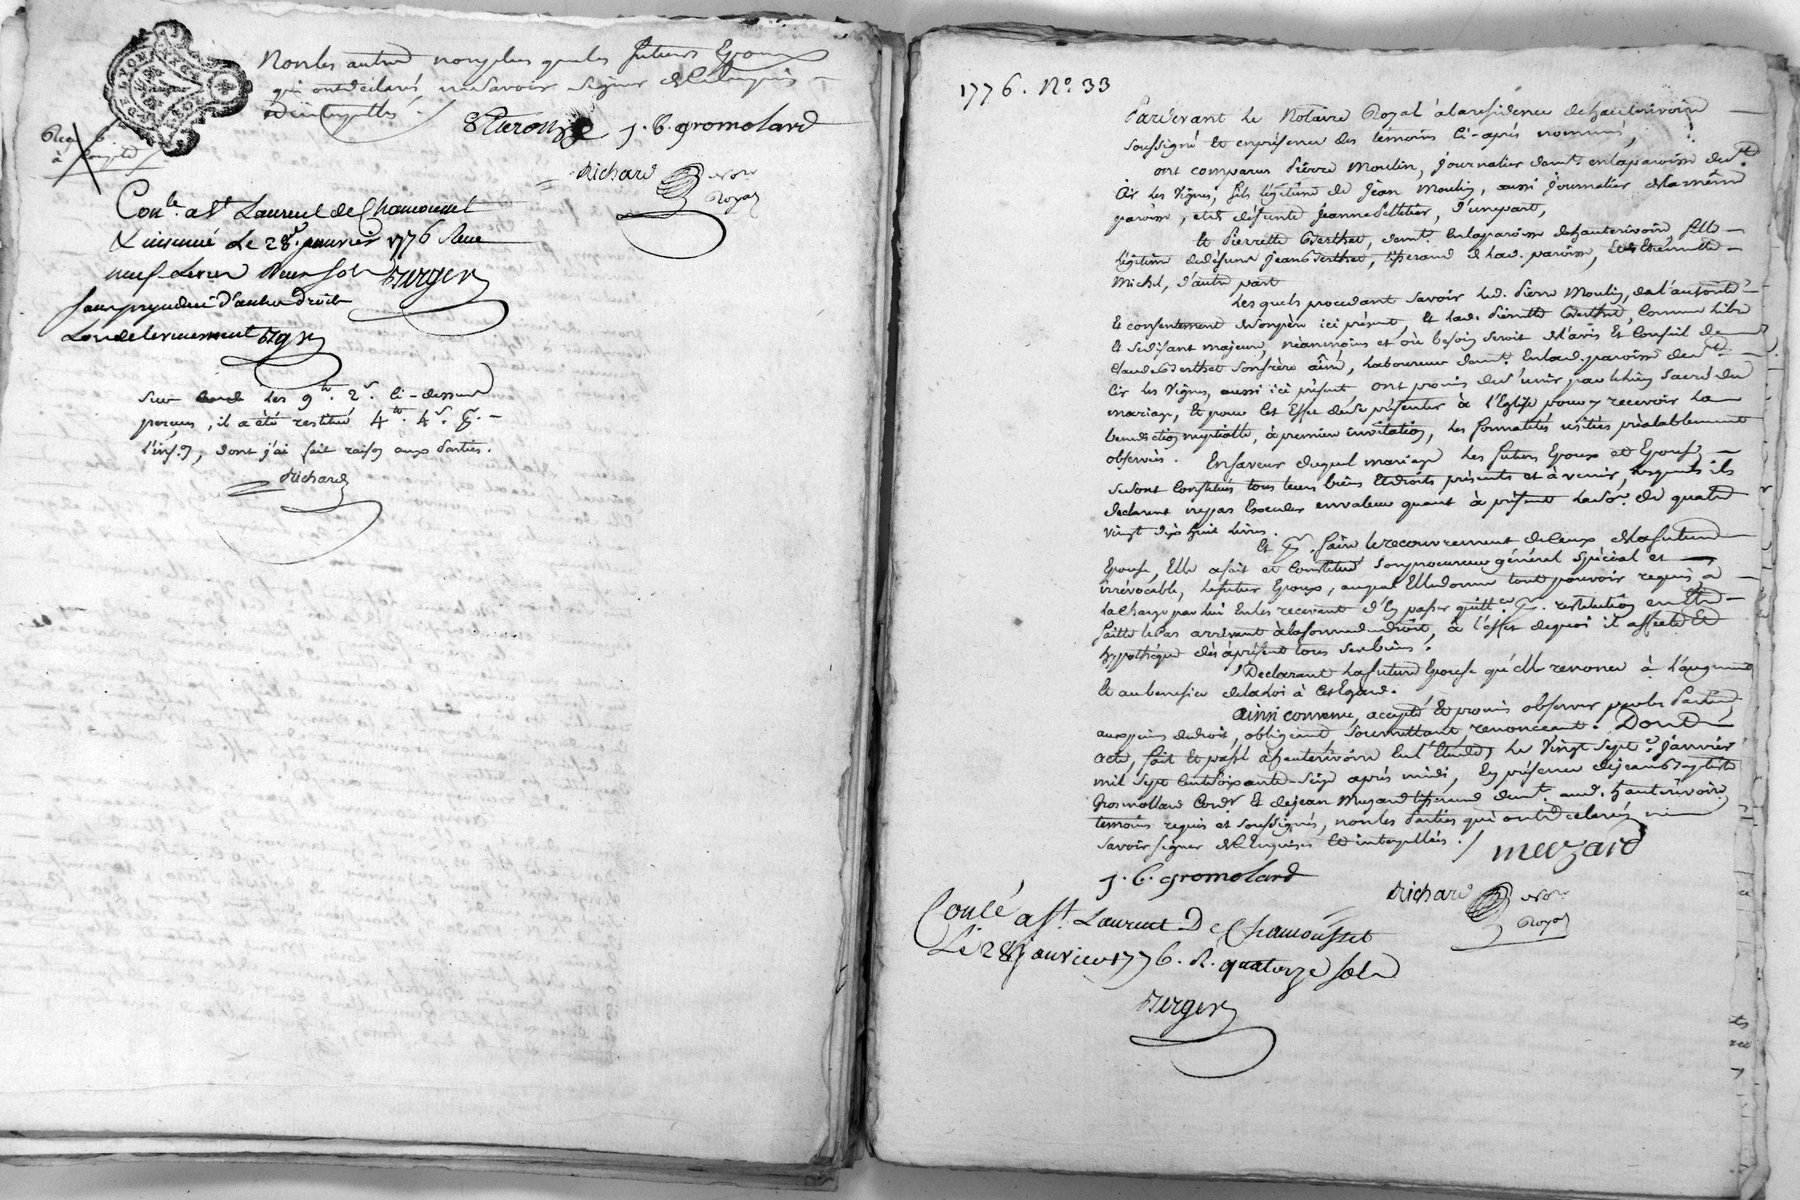 Non les autres non plus que les futurs Epoux
qui ont déclaré ne savoir signer de ce enquis
et interpellés /.
J. B. gromolard
Richard Nore
Royal
Reçu
à Compte
Conlé a St Laurent de Chamousset
& insinué Le 28e janvier 1776 Reçu
neuf Livres deux sols Berger
sans prejudice d'autre droit
Lors de levenement Bger
Sur les 9tt. 2s. Ci-dessus
perçus, il a été restitué 4tt. 4s. p.
l'ins.on, dont j'ai fait raison aux Parties.
Richard
1776. No. 33
Pardevant Le Notaire Royal à la residence de hauterivoire
soussigné Et en présence des témoins Ci-après nommés,
ont comparus Pierre Moulin, Journalier demt. en la paroisse de St.
Cir Les Vignes, fils légitime de Jean Moulin, aussi Journalier de la même
paroisse, et de défunte Jeanne Pelletier, d'une part,
Et Pierrette Berthet, demt. en la paroisse de hauterivoire, fille
légitime de défunt Jean Berthet, tisserand de lad. paroisse, et de Etiennette
Michel, d'autre part
Lesquels procedant savoir led. Pierre Moulin, de l'autorité
Et consentement de son père ici présent, Et lad. Pierrette Berthet, Comme libre
Et se disant majeure, néanmoins et où besoin seroit de l'avis Et Conseil de
Claude Berthet son frère aîné, Laboureur demt. En lad. paroisse de St.
Cir les Vignes, aussi ici présent, ont promis de s'unir par le lien sacré du
mariage, Et pour Cet Effet de se présenter à l'Eglise pour y recevoir La
benediction nuptialle, à premiere invitation, les formalités usitées préalablement
observées. En faveur duquel mariage Les futurs Epoux et Epouse
se sont Constitués tous leurs biens Et droits présents et à venir, lesquels ils
declarent ne pas Exceder en valeur quant à présent la so.e de quatre
vingt dix huit livres.
Et pr. faire le recouvrement de Ceux de la future
Epouse, Elle a fait et Constitué son procureur général spécial et
irrévocable, le futur Epoux, auquel Elle donne tout pouvoir requis, à
la charge par lui En les recevant d'En passer quittce. pr. restitution en être
faitte le Cas arrivant à la forme du droit, à l'effet de quoi il affecte Et
hypothéque dès à présent tous ses biens.
Declarant La future Epouse qu'elle renonce à l'augment
Et au benefice de la loi à Cet Egard.
Ainsi convenu, accepté Et promis observer par les Parties,
aux peines de droit, obligeant, soumettant, renonceant. Dont
acte, fait Et passé à hauterivoire En l'Etude, Le Vingt Sept e. Janvier
mil Sept Cent Soixante-Seize après midi, En présence de Jean Baptiste
Gromollard Cordr. Et de Jean Muzard tisserand demt. aud. hauterivoire
temoins requis et soussignés, non les Parties qui ont declarés ne
savoir signer de ce Enquises Et interpellées /.
meuzard
J. B. gromolard
Richard Nore
Royal
Conlé a St. Laurent De Chamousset
Le 28 Janvier 1776. R. quatorze sols
Berger